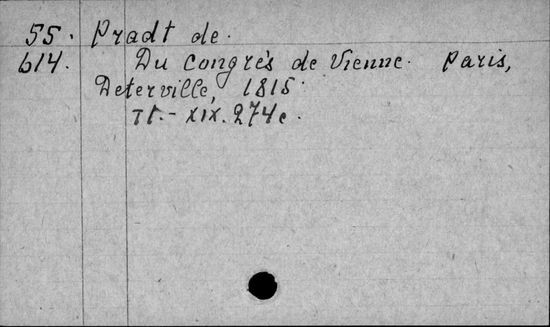 55. Pradt de.
614. Du Congrès de Vienne. Paris,
Deterville, 1815
XIX. 274 c.